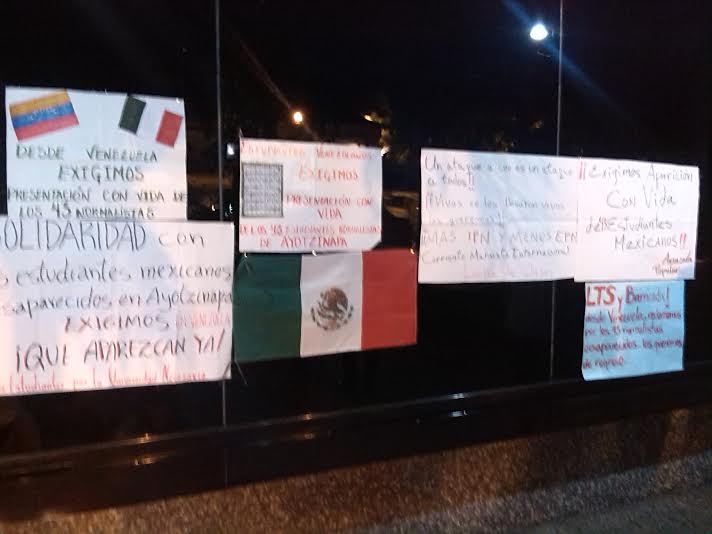 DESDE VENEZUELA
EXIGIMOS
PRESENTACIÓN CON VIDA DE
LOS 43 NORMALISTAS
SOLIDARIDAD con
estudiantes mexicanos
desaparecidos en Ayotzinapa
EXIGIMOS
¡QUE APAREZCAN YA!
Estudiantes por la Universidad Necesaria
VENEZOLANOS
EXIGIMOS
PRESENTACIÓN CON
VIDA
DE LOS 43 ESTUDIANTES NORMALISTAS
DE AYOTZINAPA
Un ataque a uno es un ataque
a todos!!
¡Vivos se los llevaron vivos
los queremos!
¡MAS IPN Y MENOS EPN
Corriente Marxista Internacional
¡¡Exigimos Aparición
Con Vida
de Estudiantes
Mexicanos!!
LTS y
desde Venezuela,
por los 43 normalistas
desaparecidos. los queremos
de regreso.